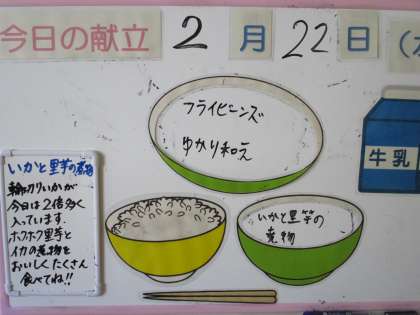 今日の献立 2月22日(木
フライビーンズ
ゆかり和え
牛乳
いかと里芋の煮物
輪切りいかが
今日は2倍多く
入っています。
ホクホク里芋と
イカの煮物を
おいしくたくさん
食べてね!!
いかと里芋の
煮物